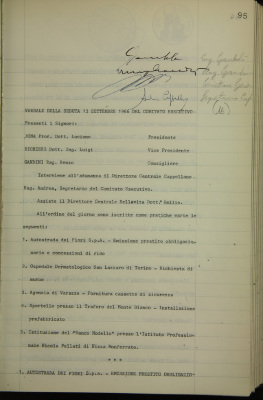 95
VERBALE DELLA SEDUTA 13 SETTEMBRE 1966 DEL COMITATO ESECUTIVO
Presenti i Signori:
JONA Prof. Dott. Luciano Presidente
Dott. Ing. Luigi Vice Presidente
GANDINI Rag. Consigliere
Interviene all'adunanza il Direttore Centrale Cappellano
Rag. Andrea, Segretario del Comitato Esecutivo.
Assiste il Direttore Centrale Dott. Emilio.
All'ordine del giorno sono iscritte come pratiche varie le
seguenti:
1. Autostrada dei Fiori S.p.A. - Emissione prestito obbligazio-
nario e concessioni di fido
2. Ospedale Dermatologico San Lazzaro di Torino - Richiesta di
mutuo
3. Agenzia di Varazze - Fornitura cassette di sicurezza
4. Sportello presso il Traforo del Monte Bianco - Installazione
prefabbricato
5. Istituzione del "Banco Modello" presso l'Istituto Professio-
nale Nicola Pellati di Nizza Monferrato.
* * *
1. AUTOSTRADA DEI FIORI S.p.A. - EMISSIONE PRESTITO OBBLIGAZIO-